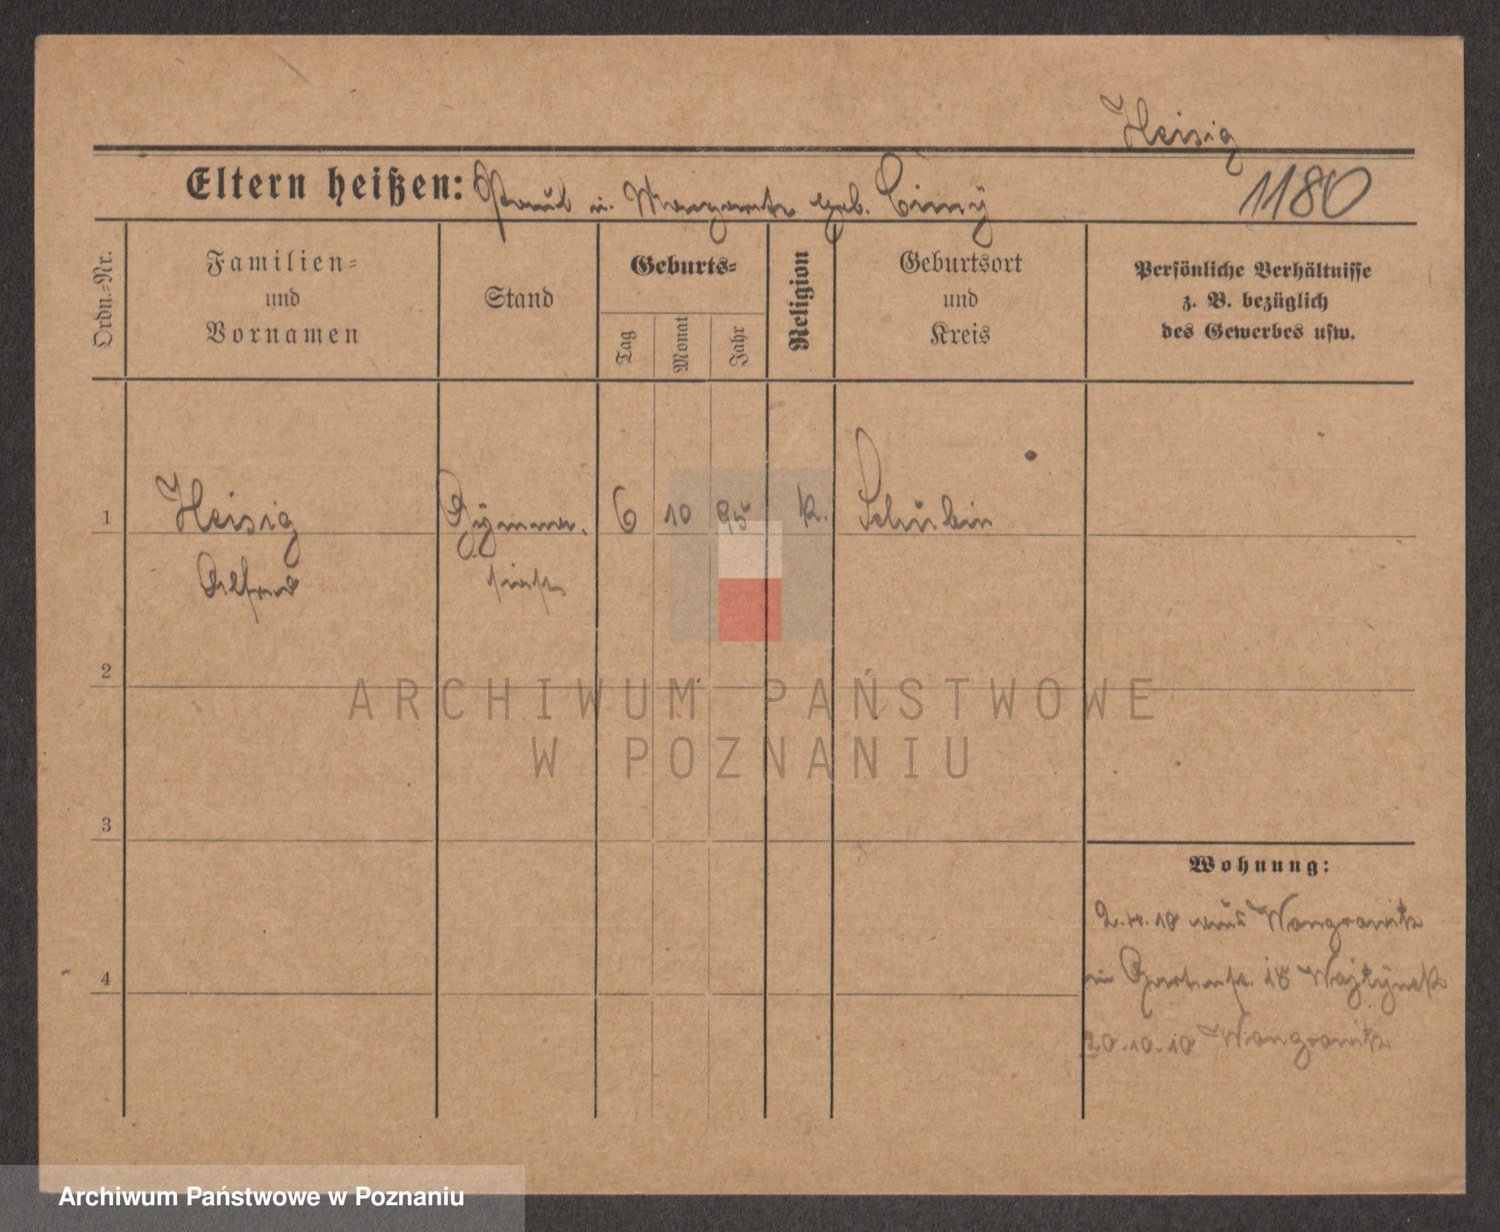 Heisig
Eltern heißen: Paul u. Margarete geb.
1180
Ordn.-Nr.
Familien-
und
Vornamen
Stand
Geburts-
Tag
Monat
Jahr
Religion
Geburtsort
und
Kreis
Persönliche Verhältnisse
z. B. bezüglich
des Gewerbes usw.
1 Heisig Gymna- 6 10 95 k. Schubin
Alfred siast
2
3
4
Wohnung:
2.4.10 aus Wongrowitz
Gartenstr. 18
20.10.10 Wongrowitz
ARCHIWUM PAŃSTWOWE
W POZNANIU
Archiwum Państwowe w Poznaniu